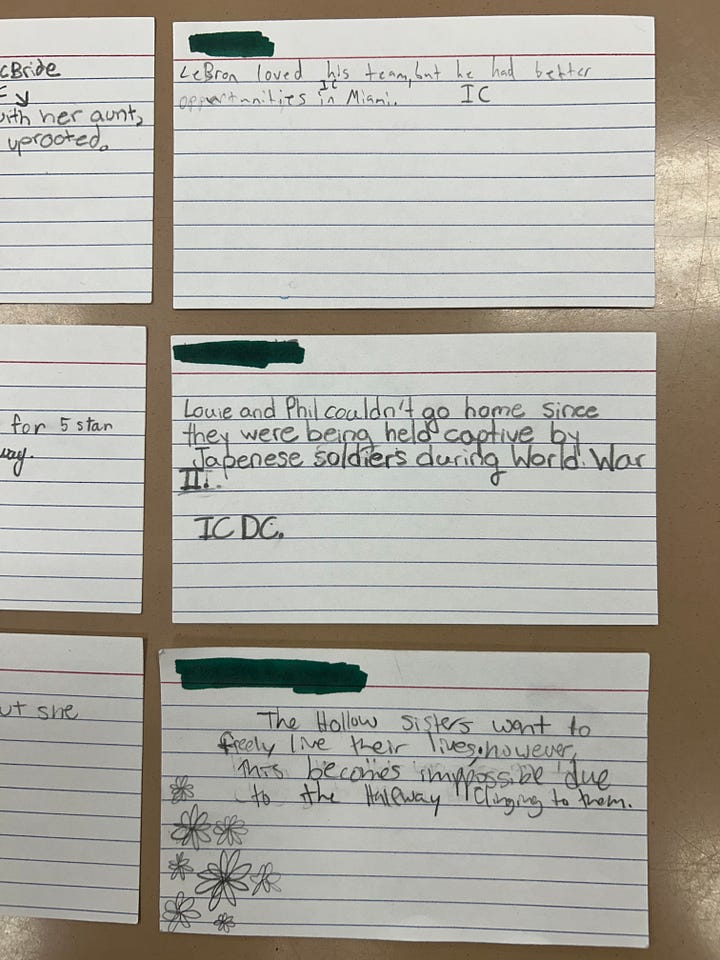 cBride
with her aunt,
uprooted.
LeBron loved his team, but he had better
IC
opportunities in Miami. IC
for 5 star
way.
Louie and Phil couldn't go home since
they were being held captive by
Japenese soldiers during World War
II.
IC DC.
ut she
The Hollow sisters want to
freely live their lives; however,
this becomes impossible due
to the Halfway clinging to them.